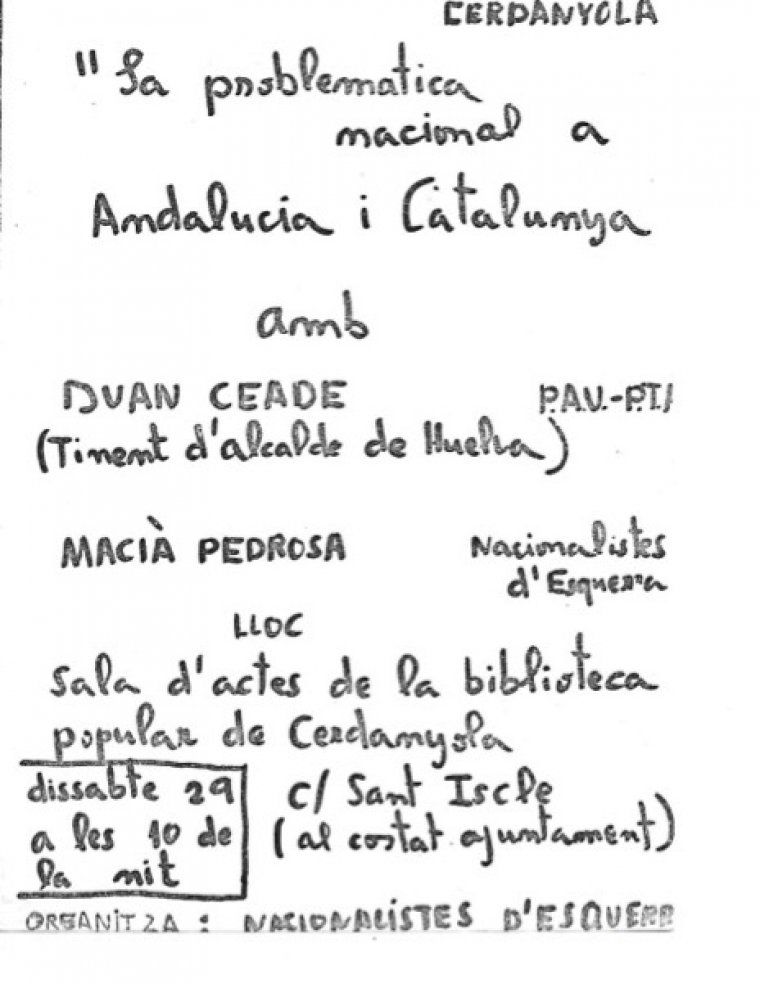 CERDANYOLA
"La problematica
nacional a
Andalucia i Catalunya
amb
DUAN CEADE P.A.U.-P.T.
(Tinent d'alcalde de Huelva)
MACIÀ PEDROSA Nacionalistes
d'Esquerra
LLOC
Sala d'actes de la biblioteca
popular de Cerdanyola
dissabte 29
a les 10 de
la nit
c/ Sant Iscle
(al costat ajuntament)
ORGANITZA : NACIONALISTES D'ESQUERR